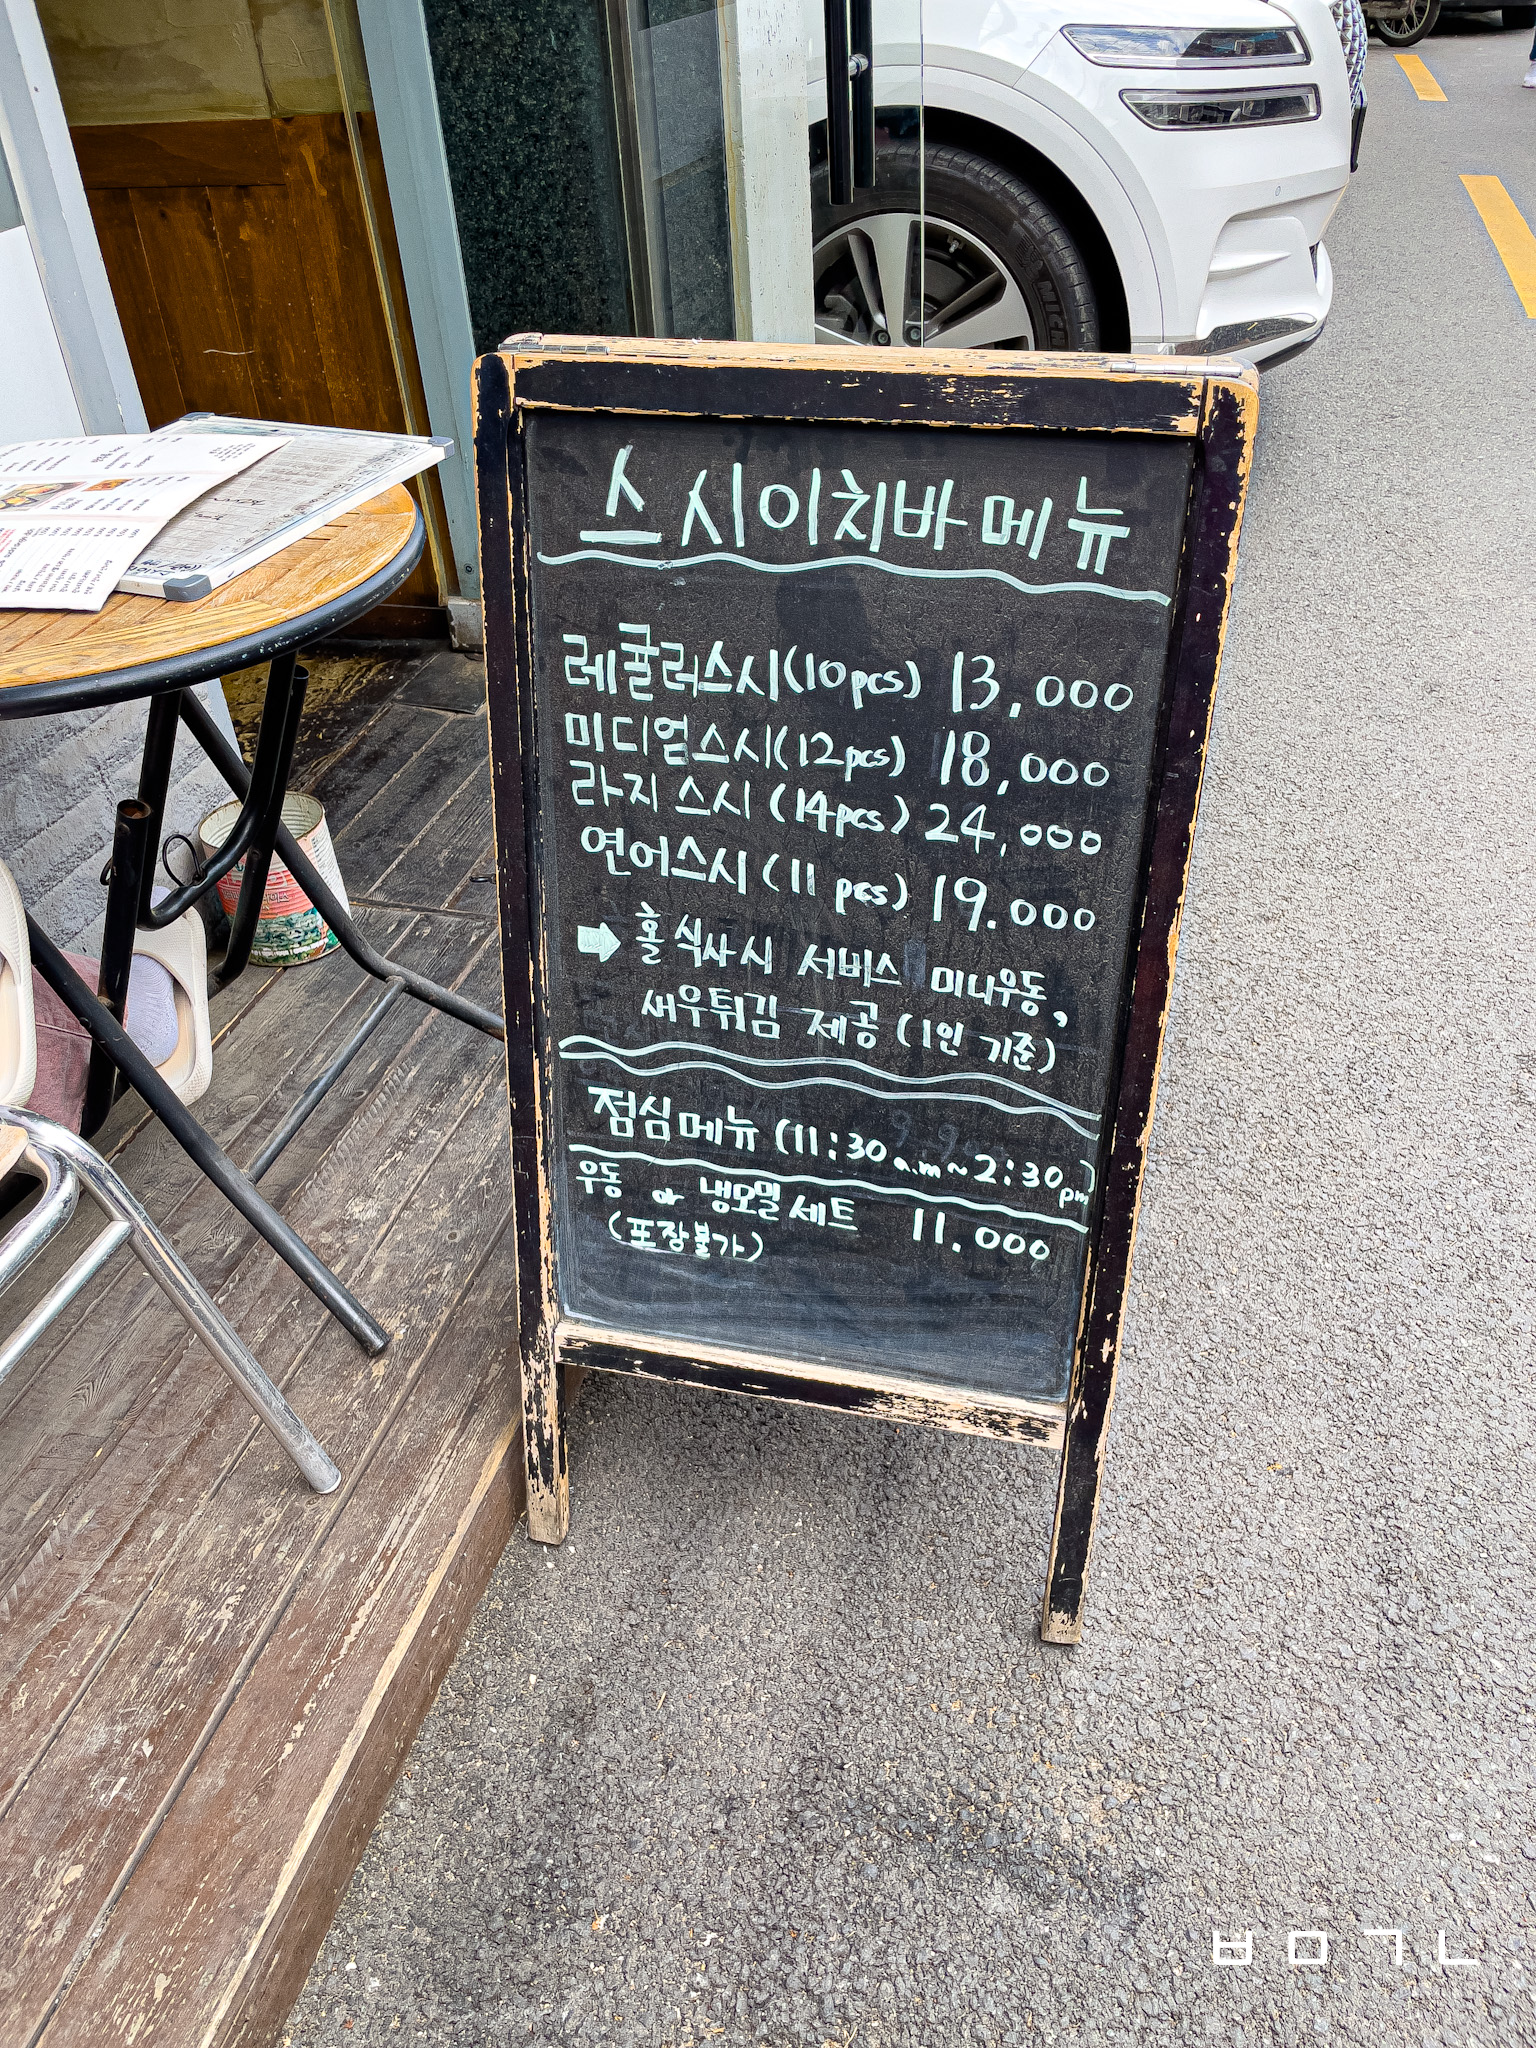 스시이치바메뉴
레귤러스시(10pcs) 13,000
미디엄스시(12pcs) 18,000
라지 스시 (14pcs) 24,000
연어스시 (11 pcs) 19.000
➡ 홀 식사시 서비스 미니우동,
새우튀김 제공 (1인 기준)
점심메뉴 (11:30 a.m ~ 2:30 pm)
우동 or 냉모밀세트 11.000
(포장불가)
ㅂㅁㄱㄱ